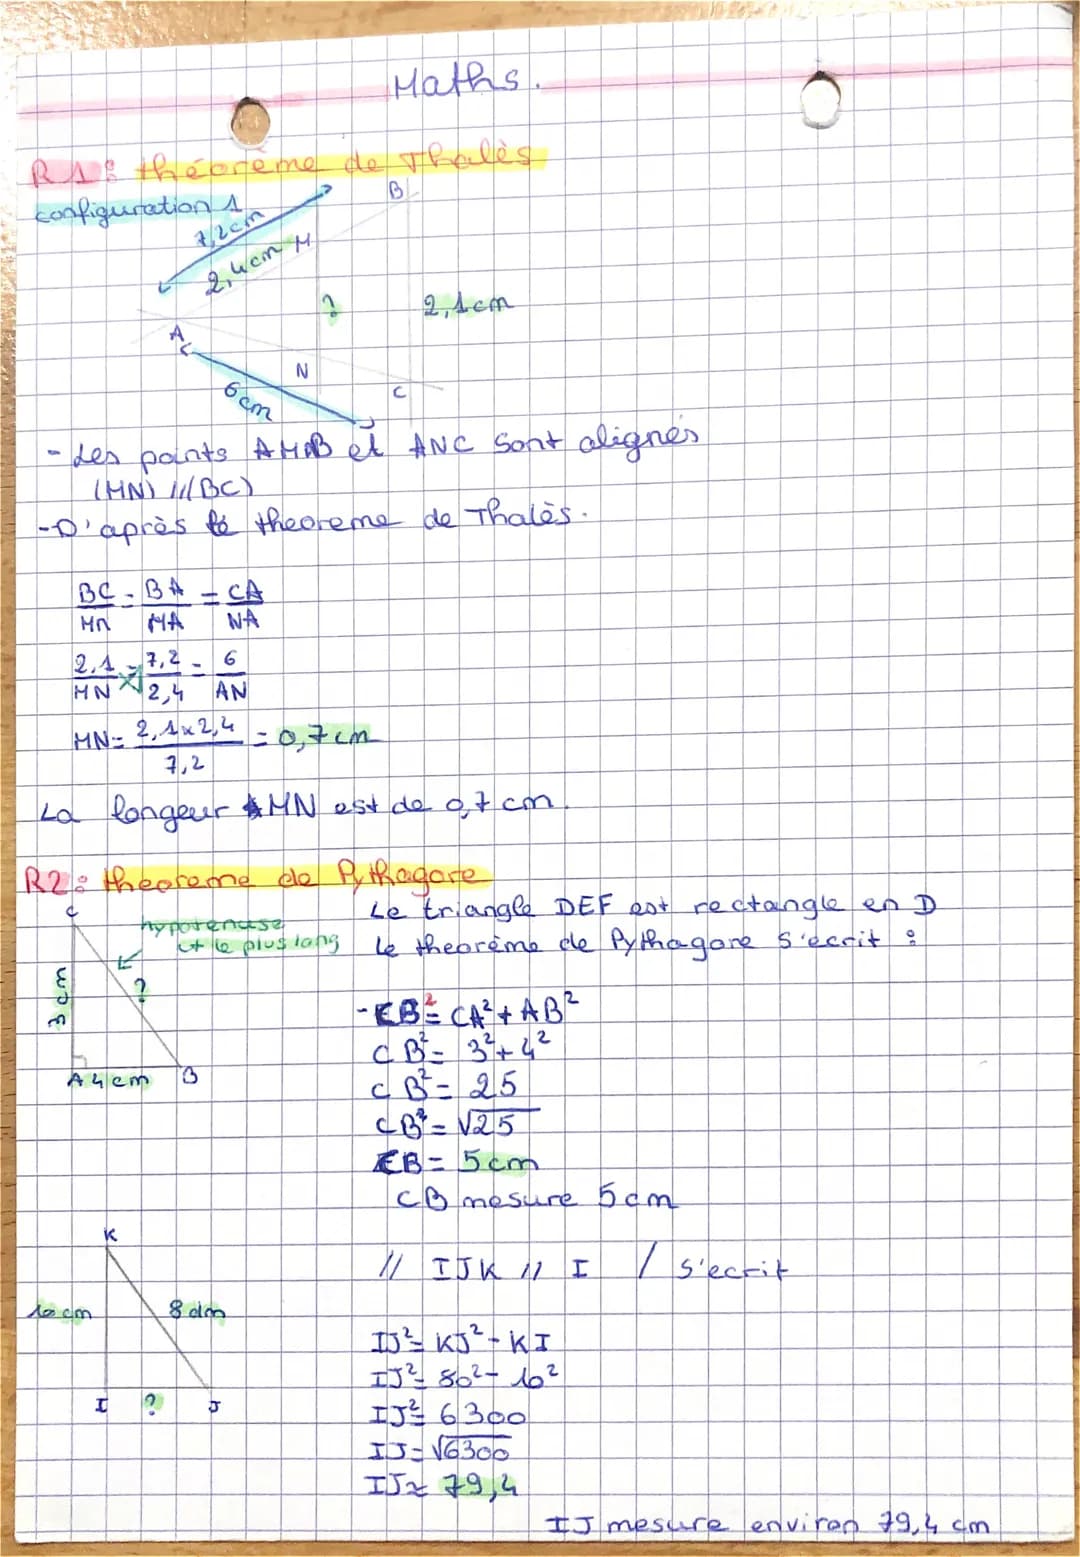 Maths.
R1: théorème de Thalès
configuration 1
B
7,2cm
2,4cm M
?
2,1cm
A
N
C
6cm
- Les points AMB et ANC sont alignés
(MN) // (BC)
- D'après le theoreme de Thalès.
BC = BA = CA
MN MA NA
2,1 = 7,2 = 6
MN 2,4 AN
MN = 2,1x2,4 = 0,7cm
7,2
La longeur MN est de 0,7 cm.
R2: theoreme de Pythagore
C
hypotenuse
ct le plus long
3cm
?
A 4cm B
Le triangle DEF est rectangle en D
Le theorème de Pythagore s'ecrit :
- CB² = CA² + AB²
CB² = 3² + 4²
CB² = 25
CB² = √25
CB = 5cm
CB mesure 5cm
K
10cm
8dm
I ? J
// IJK // I / s'ecrit
IJ² = KJ² - KI
IJ² = 80² - 10²
IJ² = 6300
IJ = √6300
IJ ≈ 79,4
IJ mesure environ 79,4 cm